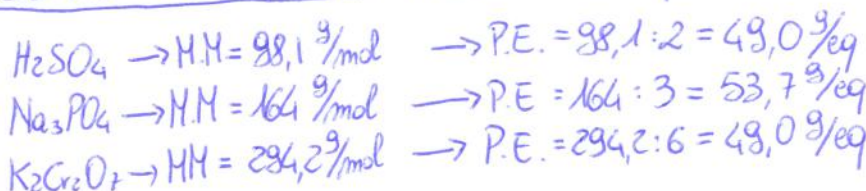 H₂SO₄ → M.M = 98,1 g/mol → P.E. = 98,1 : 2 = 49,0 g/eq
Na₃PO₄ → M.M = 164 g/mol → P.E = 164 : 3 = 53,7 g/eq
K₂Cr₂O₇ → MM = 294,2 g/mol → P.E. = 294,2 : 6 = 49,0 g/eq